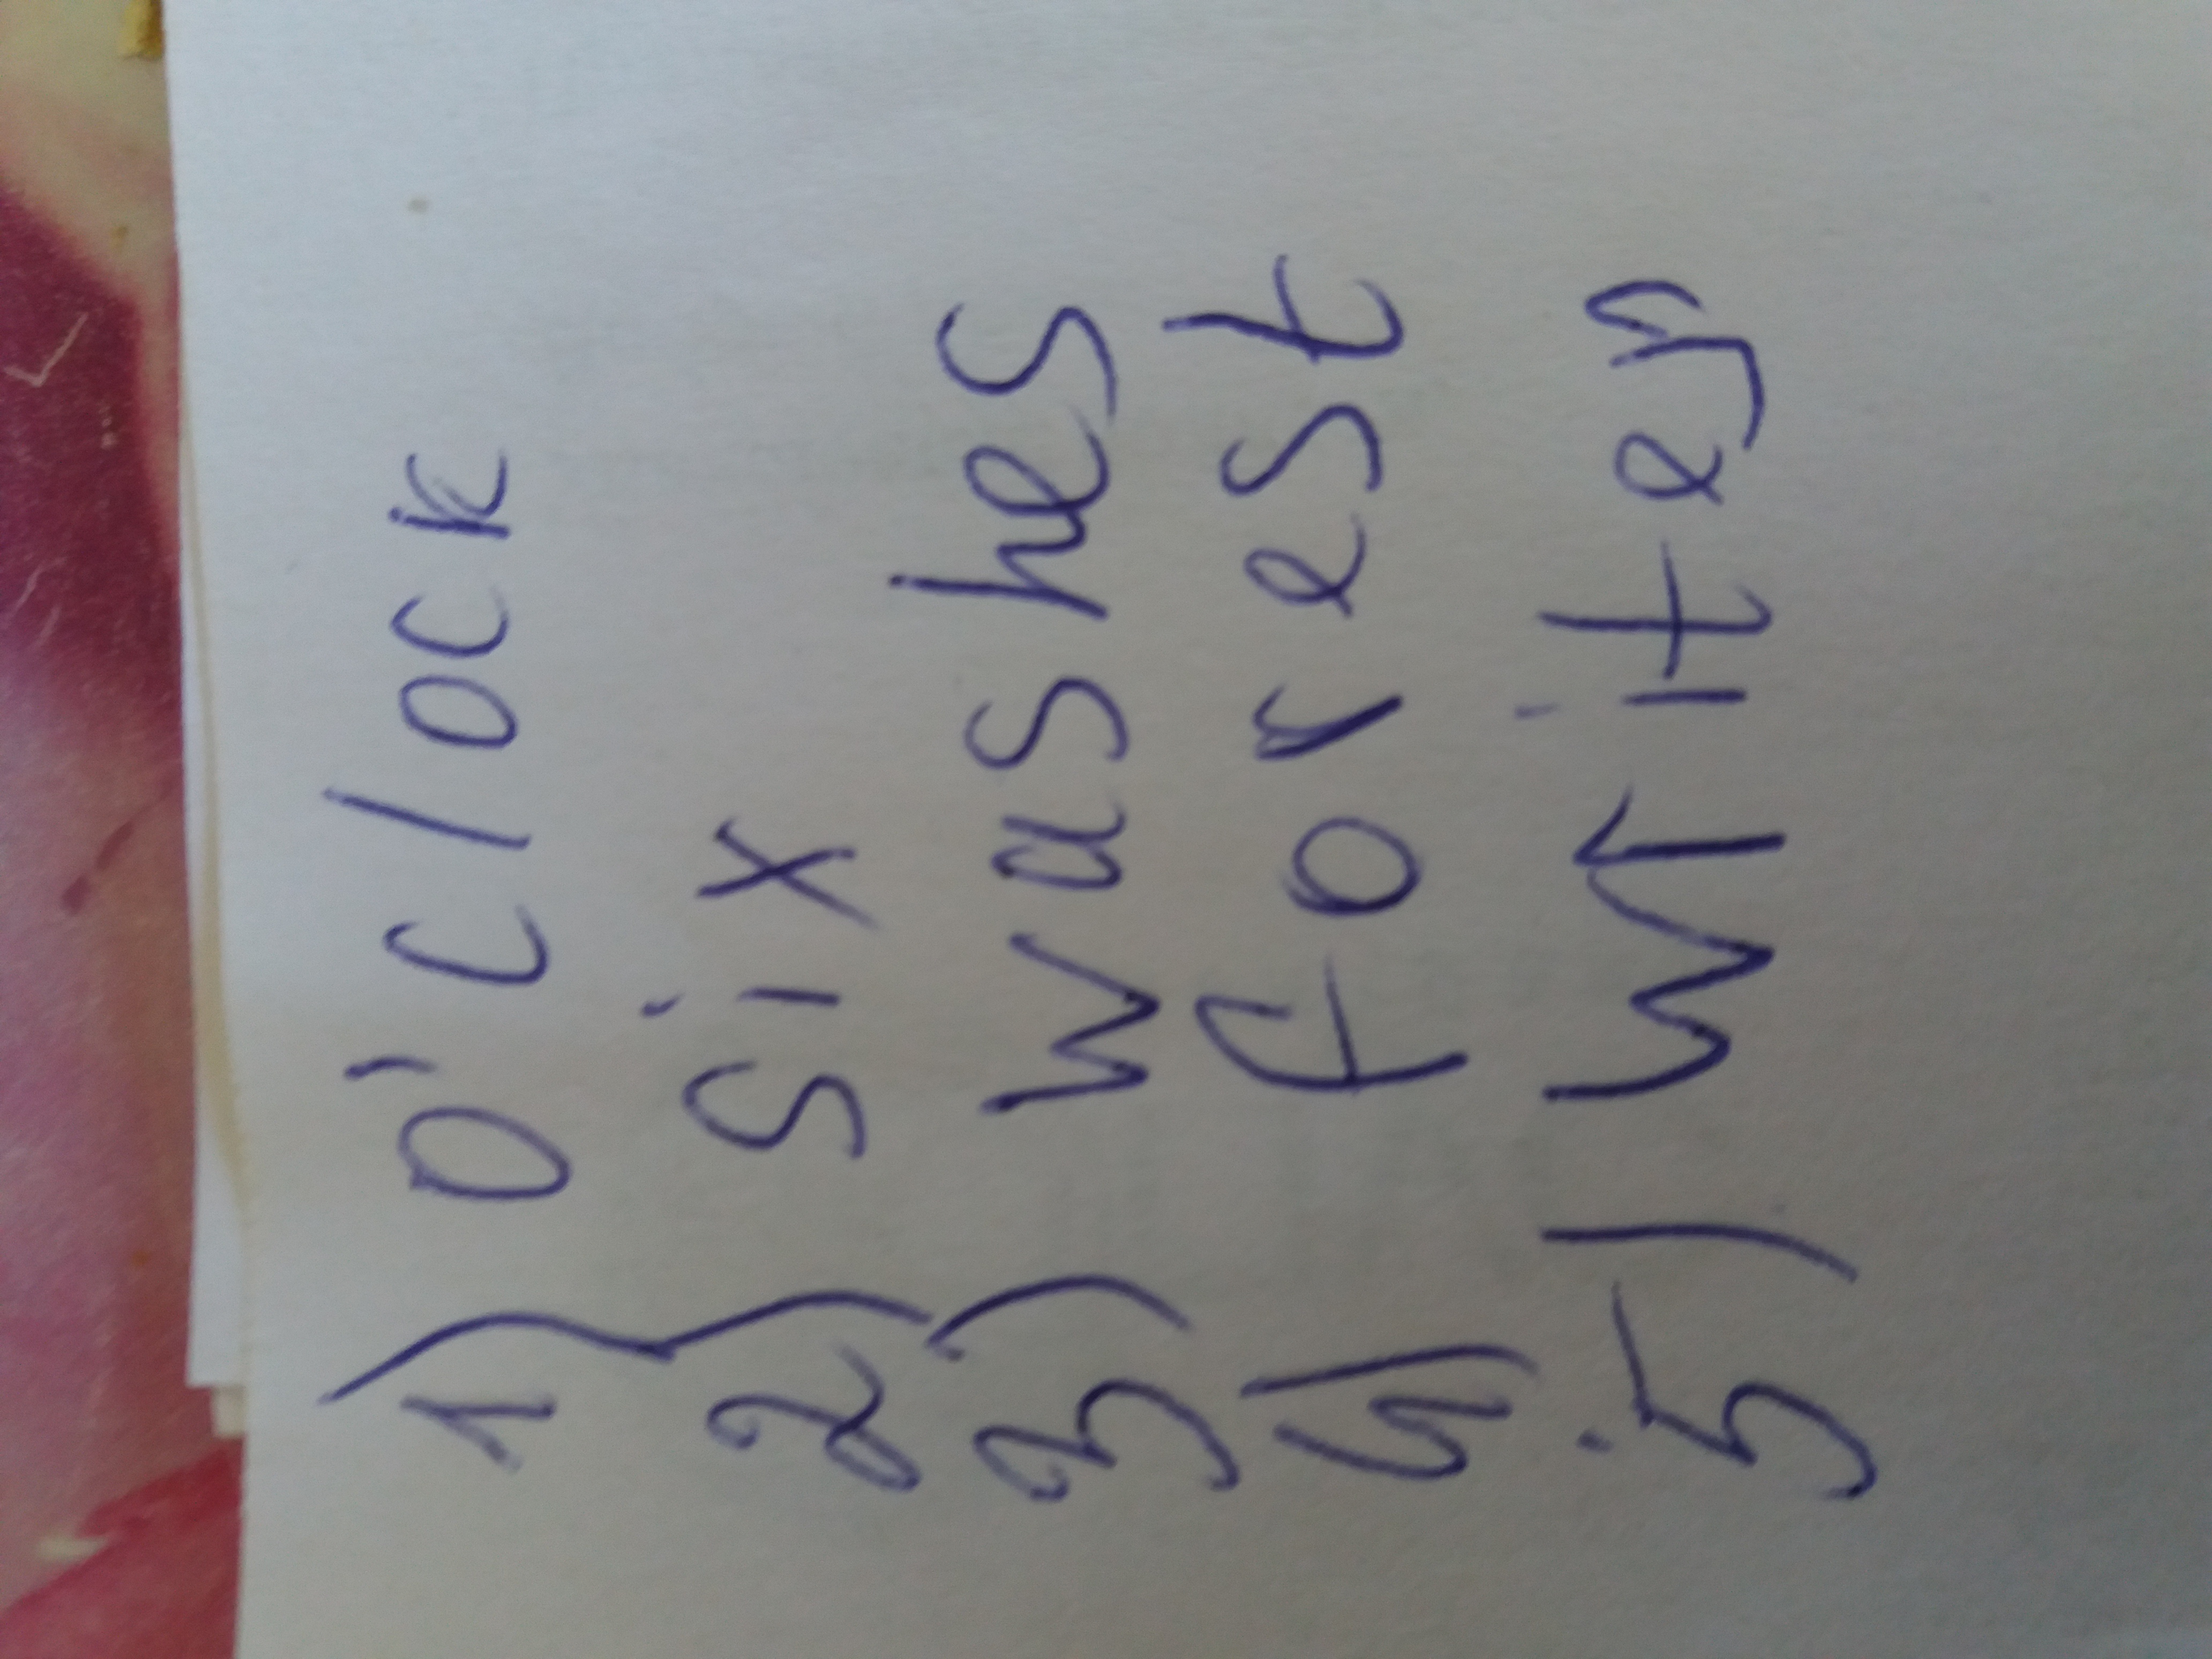 1) O'clock
2) six
3) washes
4) Forest
5) writer